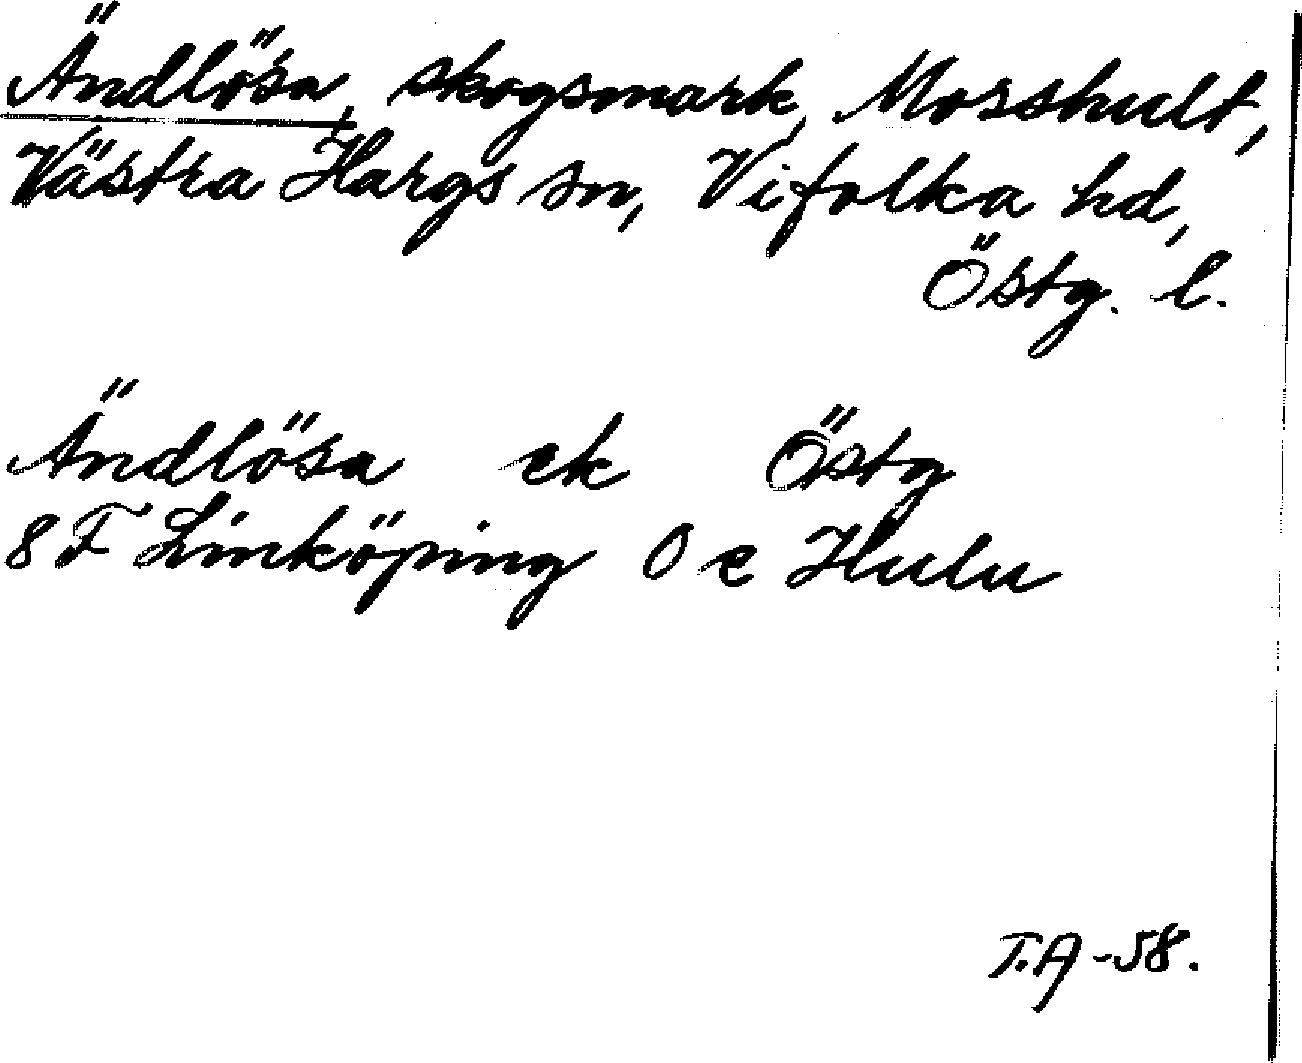 Ändlösa, skogsmark, Mosshult,
Västra Hargs sn, Vifolka hd,
Östg. l.
Ändlösa ek Östg
8F Linköping 0 e Hulu
T.A -58.